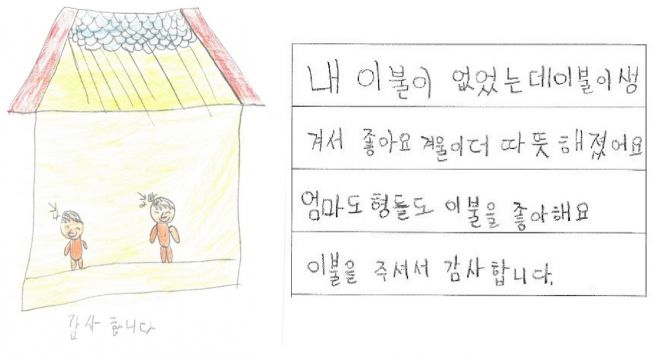 감사합니다
내 이불이 없었는데이불이생
겨서 좋아요 겨울이더 따뜻해졌어요
엄마도형들도 이불을 좋아해요
이불을 주셔서 감사합니다.